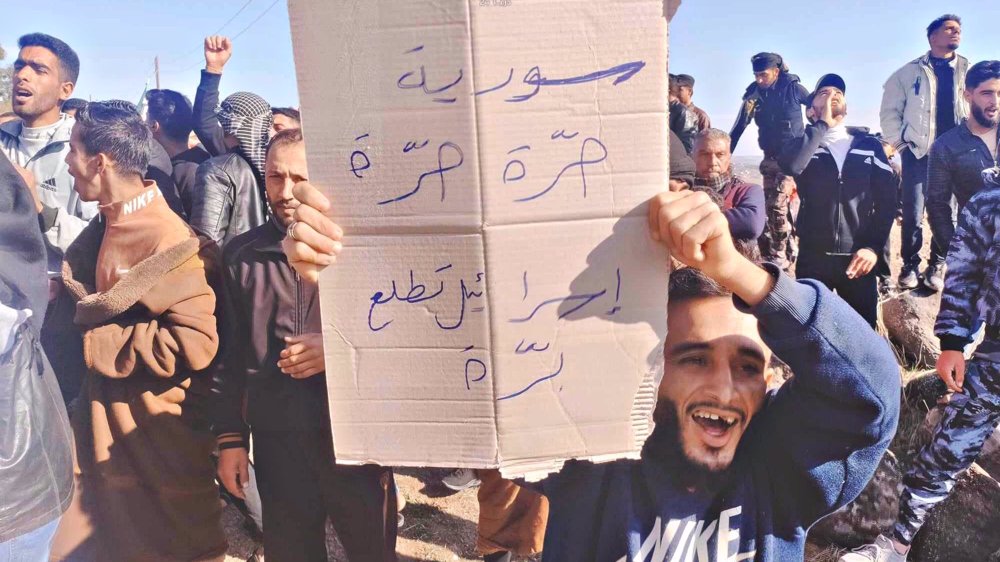 سورية
حرّة حرّة
إسرائيل تطلع
برّة
NIKE
NIKE
adidas